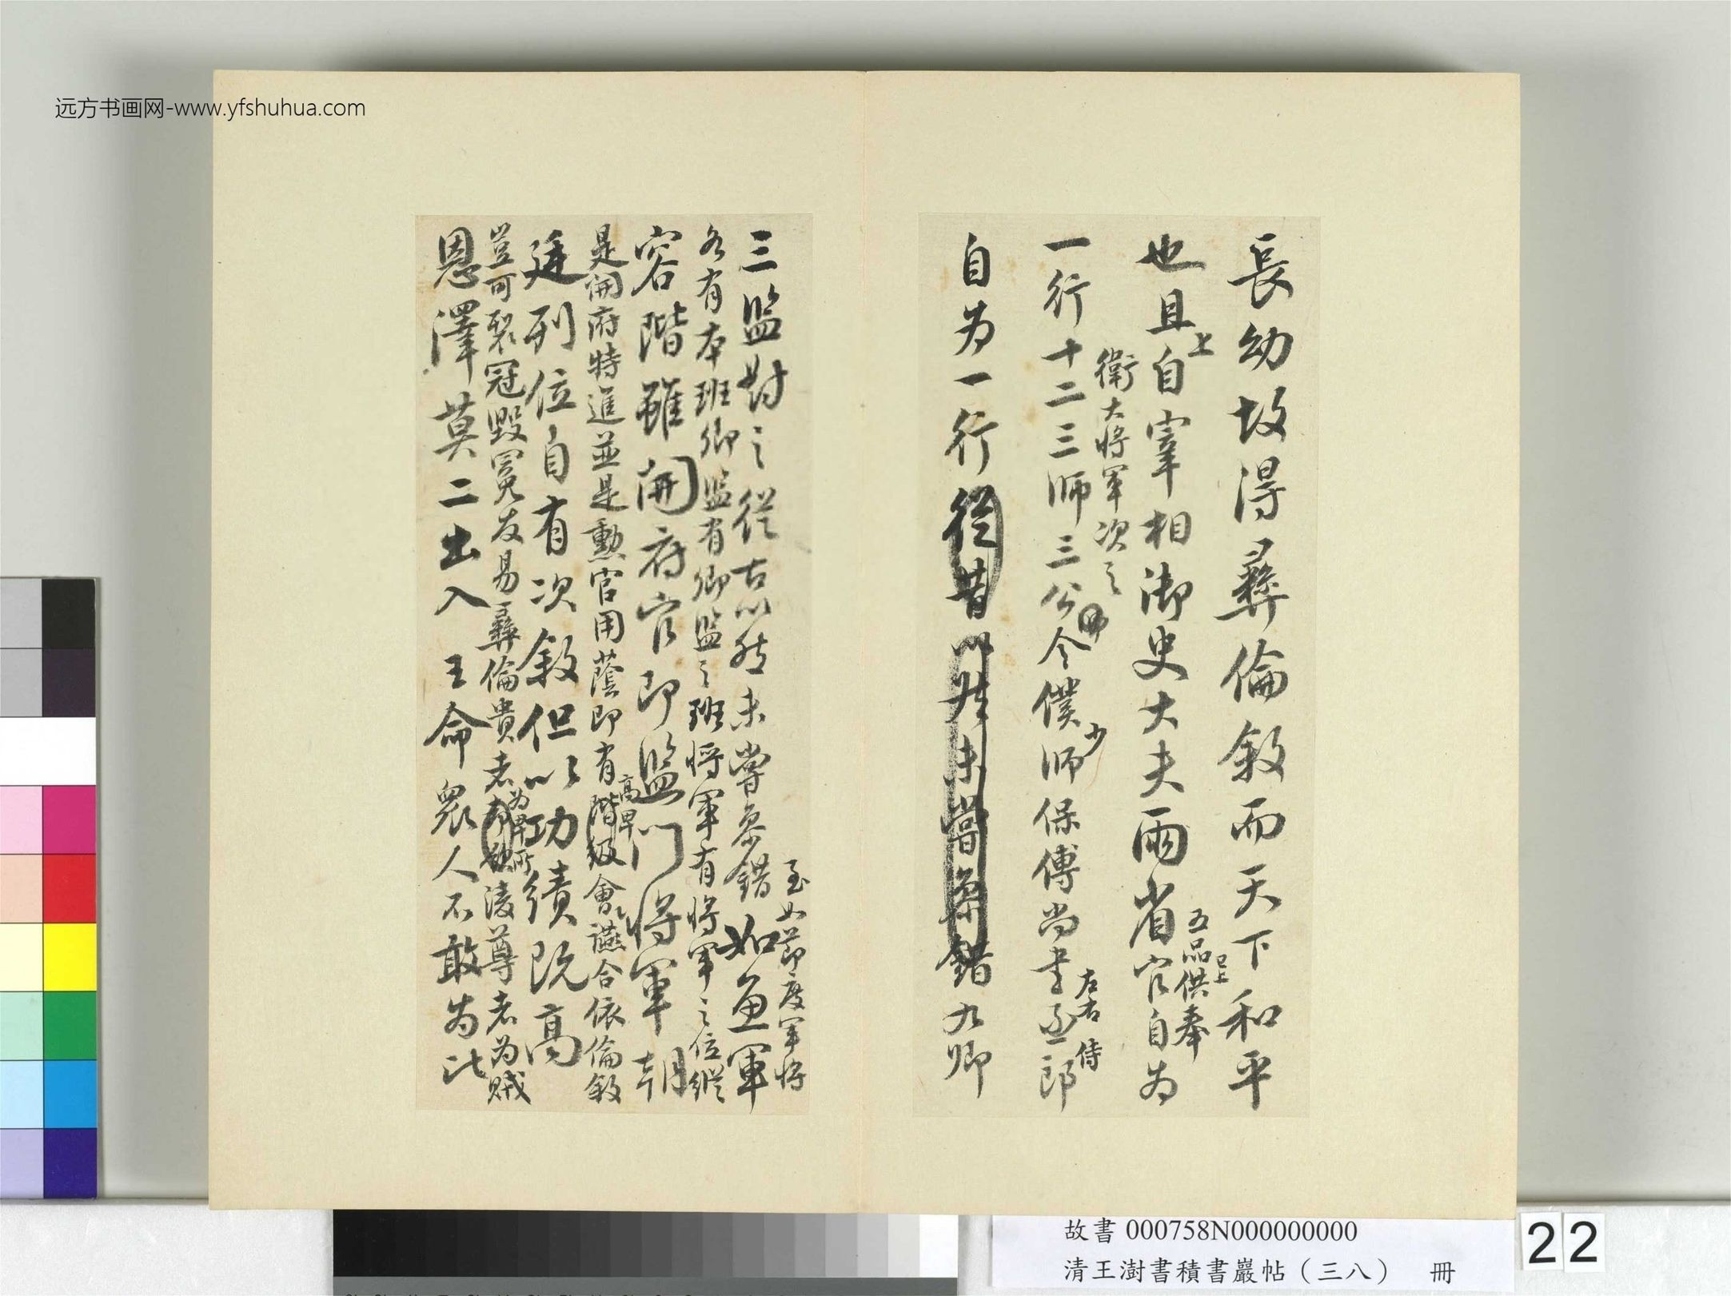 远方书画网-www.yfshuhua.com
長幼故得彝倫敘而天下和平
也且上自宰相御史大夫兩省五品已上供奉官自為
一行十二衛大將軍次之三師三公令僕少師保傅尚書左右丞侍郎
自為一行從昔以然未嘗參錯九卿
三監對之從古以然未嘗參錯至如節度軍將
各有本班卿監有卿監之班將軍有將軍之位縱
如魚軍
容階雖開府官即監門將軍朝
是開府特進並是勳官用蔭即有高卑階級會讌合依倫敘
廷列位自有次敘但以功績既高
豈可裂冠毀冕反易彝倫貴者為卑所淩尊者為賊
恩澤莫二出入王命眾人不敢為比
故書 000758N000000000
清王澍書積書巖帖（三八） 冊
22